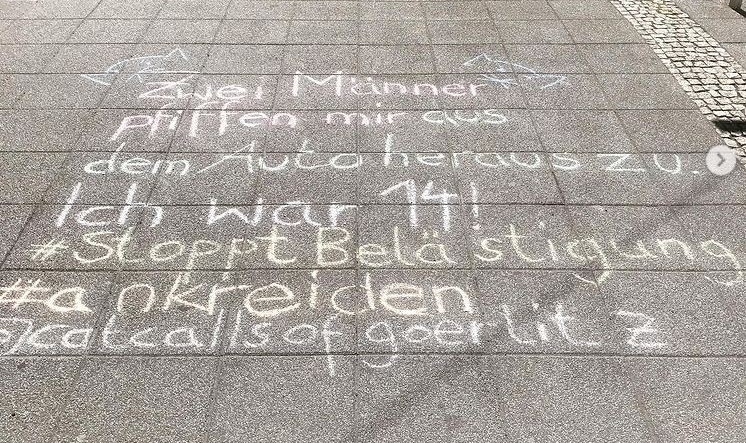 Zwei Männer
pfiffen mir aus
dem Auto heraus zu.
Ich war 14!
#StopptBelästigung
#ankreiden
@catcallsofgoerlitz